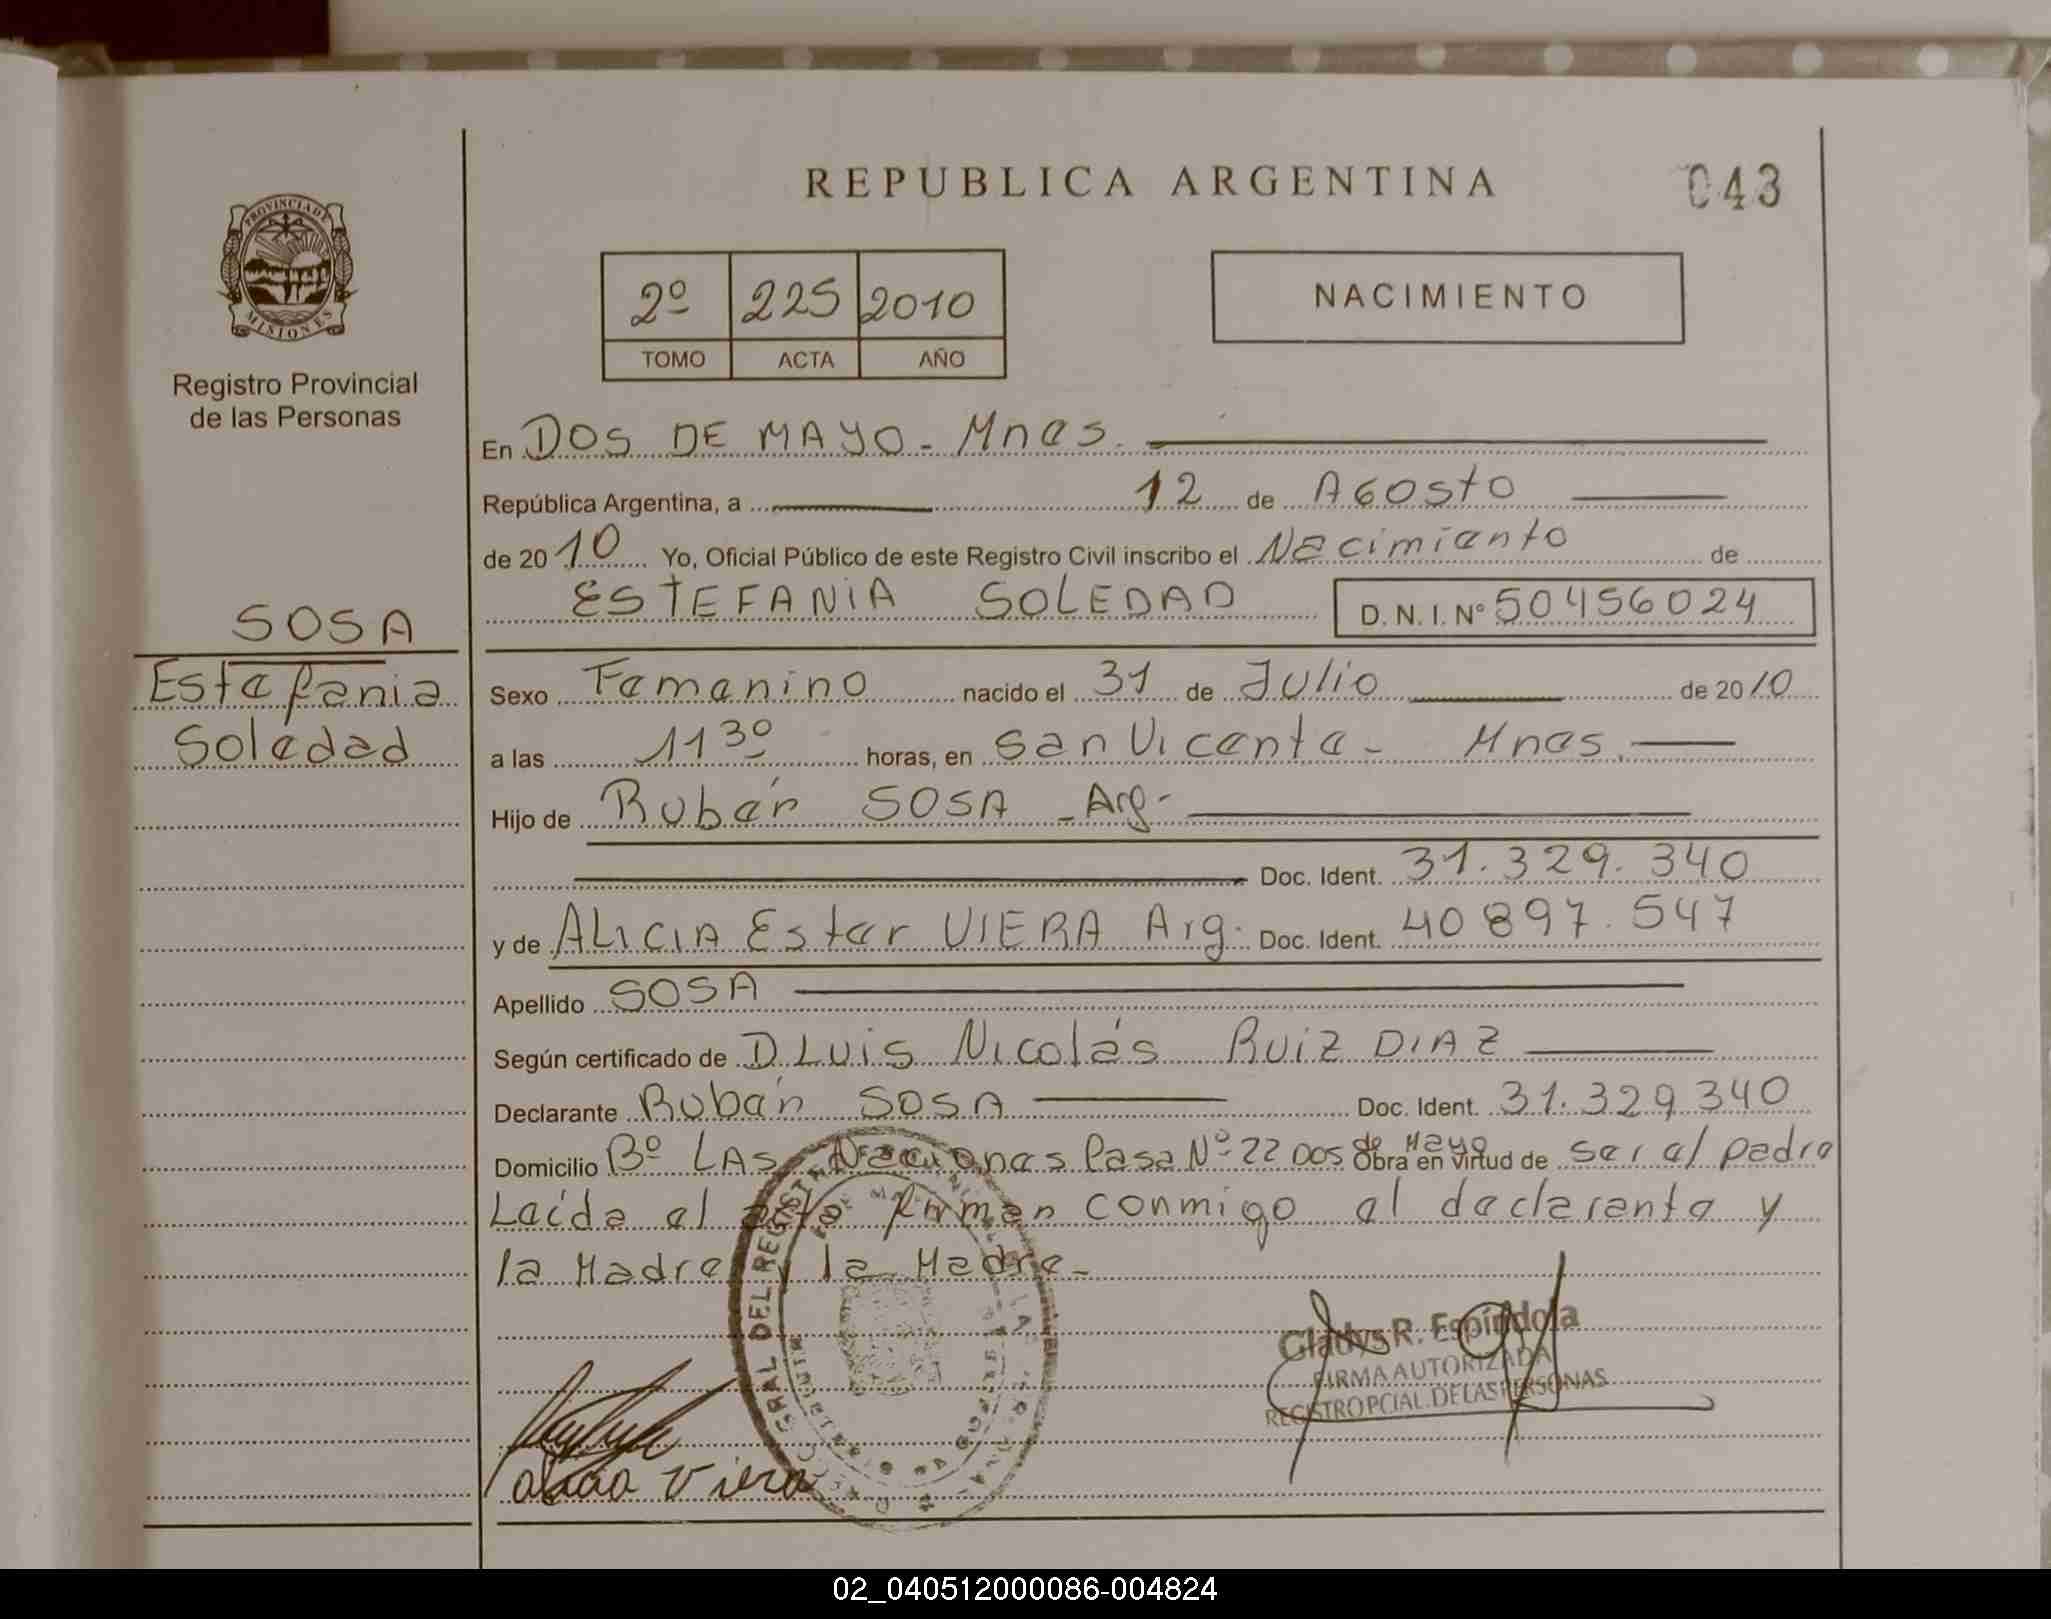 REPUBLICA ARGENTINA
043
PROVINCIA DE
MISIONES
Registro Provincial
de las Personas
2º 225 2010
TOMO ACTA AÑO
NACIMIENTO
En DOS DE MAYO - Mnes.
República Argentina, a 12 de Agosto
de 2010 Yo, Oficial Público de este Registro Civil inscribo el Nacimiento de
ESTEFANIA SOLEDAD D. N. I. Nº 50456024
SOSA
Estefania
Soledad
Sexo Femenino nacido el 31 de Julio de 2010
a las 11 30 horas, en San Vicente - Mnes.
Hijo de Rubén SOSA - Arg.
Doc. Ident. 31.329.340
y de ALICIA Ester VIERA Arg. Doc. Ident. 40897.547
Apellido SOSA
Según certificado de D. Luis Nicolás Ruiz DIAZ
Declarante Rubén SOSA Doc. Ident. 31.329340
Domicilio Bº LAS Naciones Casa Nº 22 DOS de Mayo Obra en virtud de ser el padre
Leída el acta firman conmigo el declarante y
la Madre y la Madre.
Gladys R. Espíndola
FIRMA AUTORIZADA
REGISTRO PCIAL. DE LAS PERSONAS
Viera
GRAL DEL REGIST
02_040512000086-004824